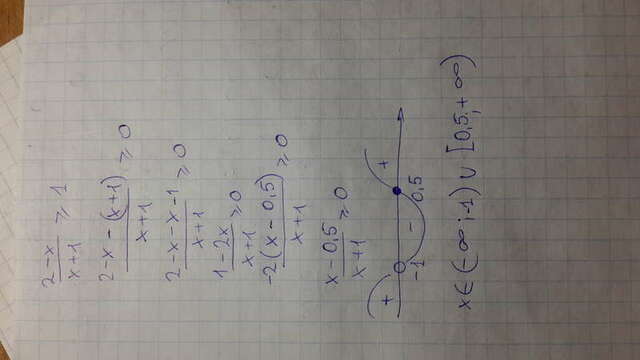 (2-x)/(x+1) ≥ 1
(2-x-(x+1))/(x+1) ≥ 0
(2-x-x-1)/(x+1) ≥ 0
(1-2x)/(x+1) ≥ 0
(-2(x-0,5))/(x+1) ≥ 0
(x-0,5)/(x+1) ≥ 0
+ - +
-1 0,5
x∈(-∞;-1)∪[0,5;+∞)